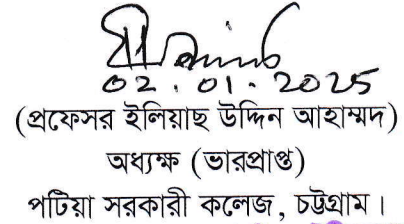 02.01.2025
(প্রফেসর ইলিয়াছ উদ্দিন আহাম্মদ)
অধ্যক্ষ (ভারপ্রাপ্ত)
পটিয়া সরকারী কলেজ, চট্টগ্রাম।